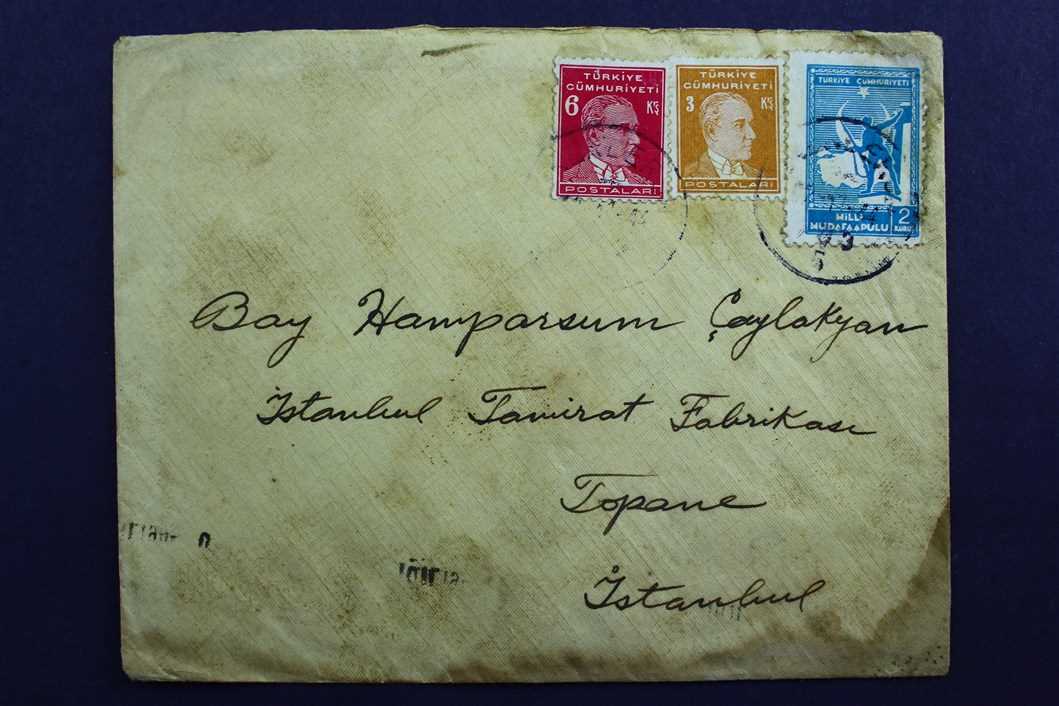 TÜRKİYE
CÜMHURİYETİ
6 Krş
POSTALARI
TÜRKİYE
CÜMHURİYETİ
3 Krş
POSTALARI
TÜRKİYE CÜMHURİYETİ
MİLLİ
MÜDAFAA PULU
2
KURUŞ
Bay Hamparsum Çaylakyan
İstanbul Tamirat Fabrikası
Topane
İstanbul